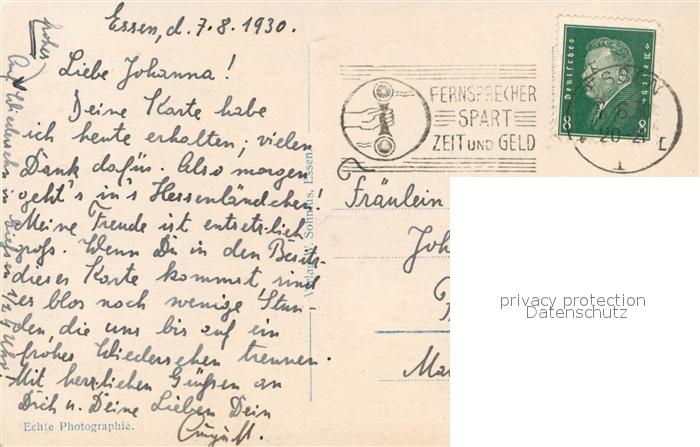 Essen, d. 7.8.1930.
Liebe Johanna!
Deine Karte habe
ich heute erhalten; vielen
Dank dafür. Also morgen
geht's in's Hessenländchen!
Meine Freude ist entsetzlich
groß. Wenn Du in den Besitz
dieser Karte kommst, sind
es blos noch wenige Stun-
den, die uns bis auf ein
frohes Wiedersehen trennen.
Mit herzlichen Grüßen an
Dich u. Deine Lieben Dein
August.
Auf frohes Wiedersehn in Gießen 1/2 4 Uhr
Echte Photographie.
Verlag W. Sohnius, Essen
FERNSPRECHER
SPART
ZEIT UND GELD
ESSEN
20-21
1
Deutsches Reich
8 8
Fräulein
Joh
Ma
privacy protection
Datenschutz